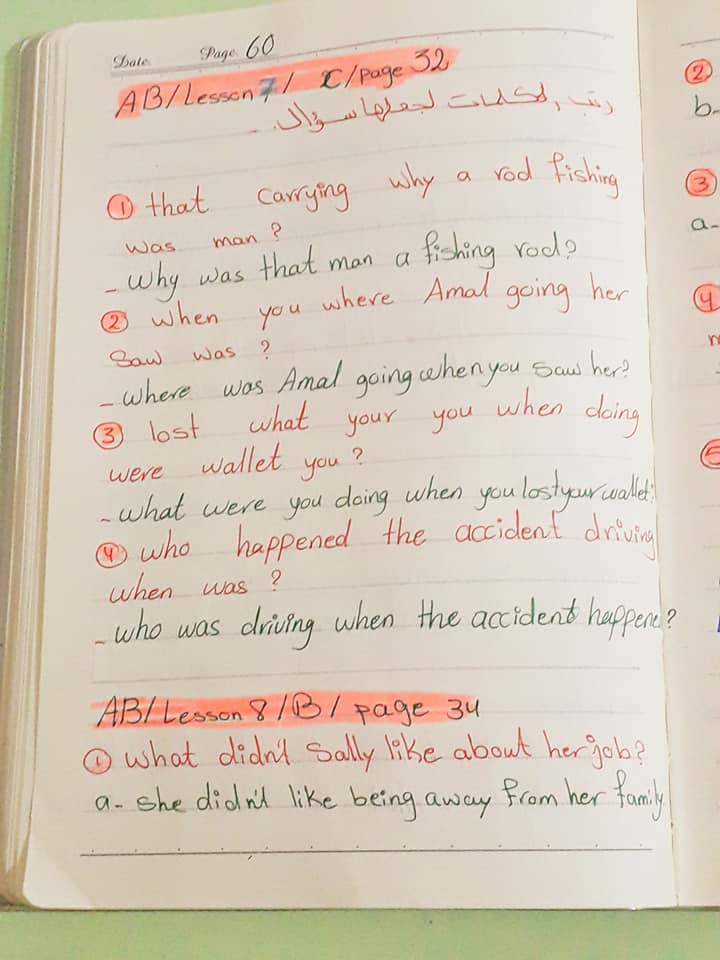 Date Page 60
AB/Lesson 7/ C/page 32
رتب الكلمات لجعلها سؤال.
① that carrying why a rod fishing
was man ?
- Why was that man a fishing rod?
② when you where Amal going her
Saw was ?
- where was Amal going when you saw her?
③ lost what your you when doing
were wallet you ?
- what were you doing when you lost your wallet?
④ who happened the accident driving
when was ?
- who was driving when the accident happene?
AB/Lesson 8/B/ page 34
① what didn't Sally like about her job?
a- she didn't like being away from her family
②
b-
③
a-
④